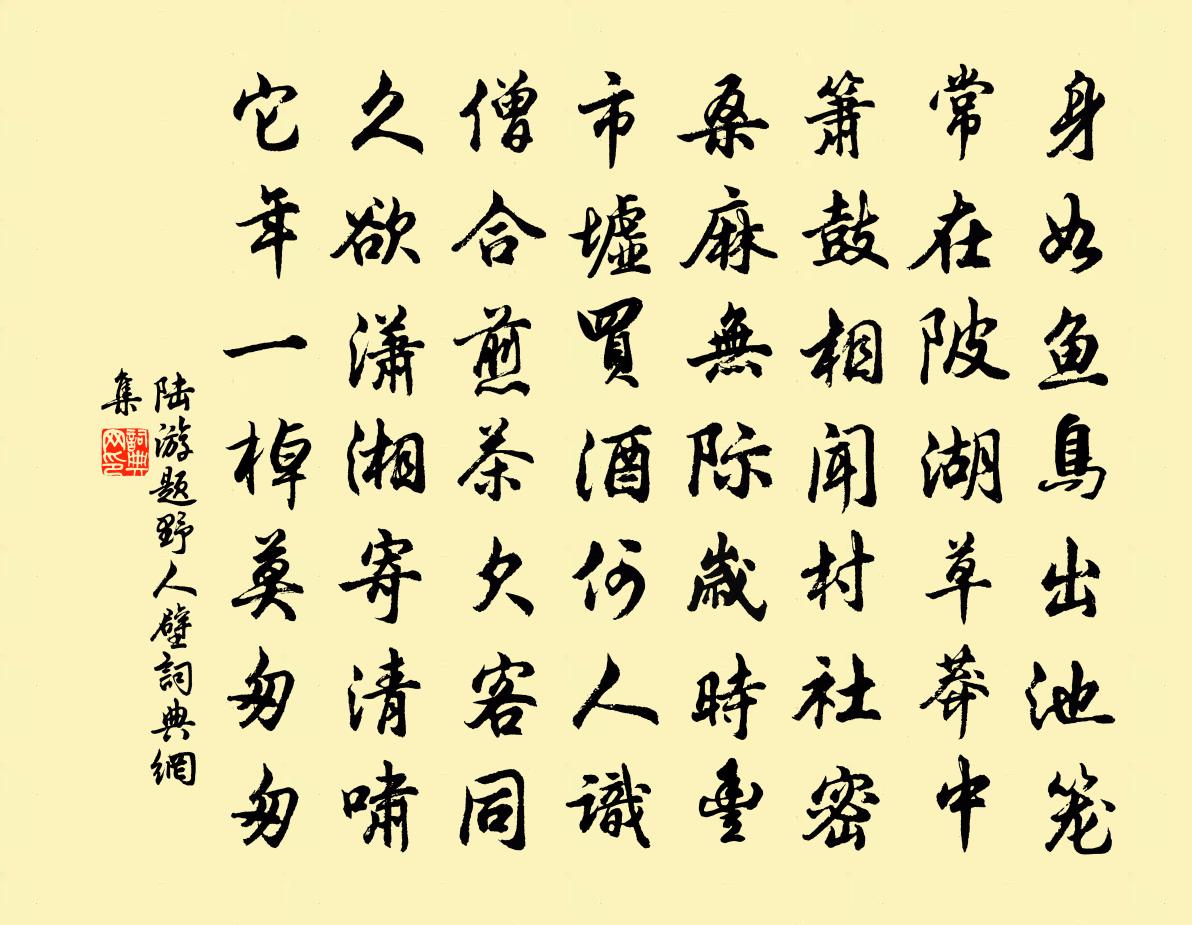 身如鱼鳥出池笼
常在陂湖草莽中
箫鼓相闻村社密
桑麻無际歲時豊
市墟買酒何人識
僧合煎茶欠客同
久欲潇湘寄清啸
它年一棹莫匆匆
陆游题野人壁詞典網
集
詞典网印